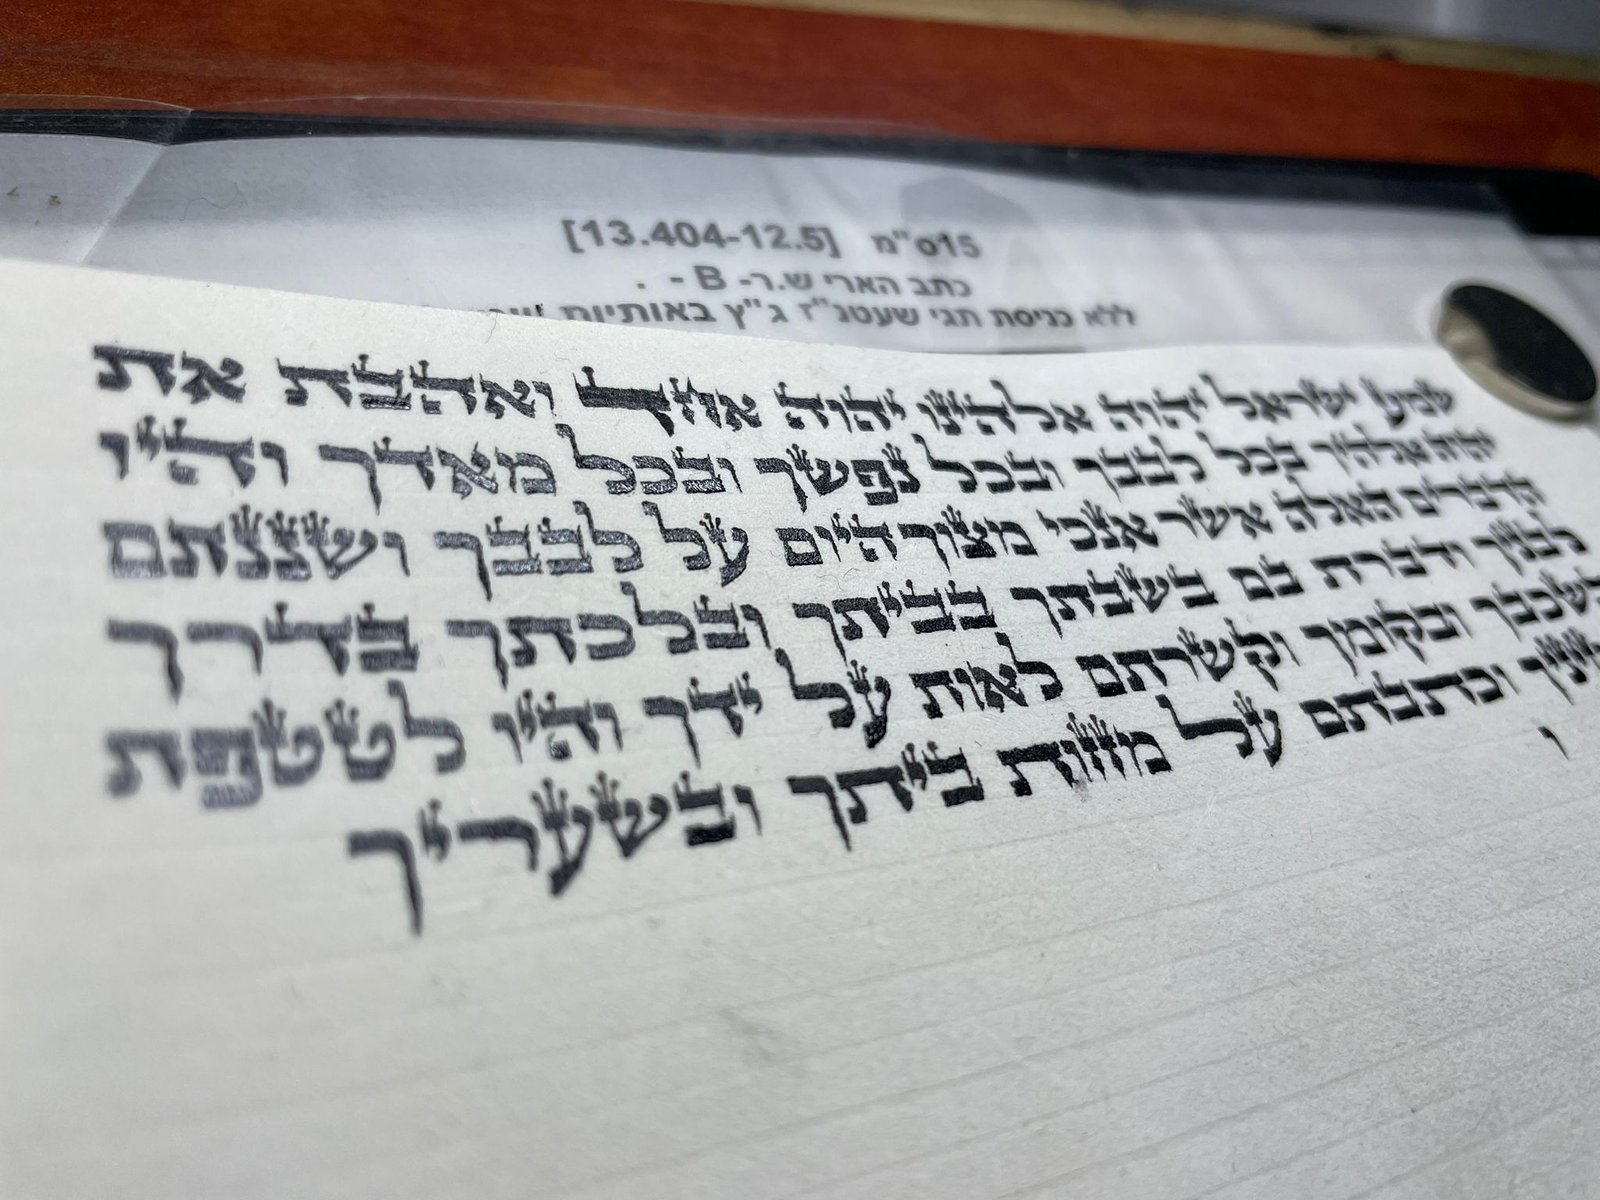 15ס"מ [13.404-12.5]
כתב הארי ש.ר- B - .
ללא כניסת תגי שעטנ"ז ג"ץ באותיות
שמע ישראל יהוה אלהינו יהוה אחד ואהבת את
יהוה אלהיך בכל לבבך ובכל נפשך ובכל מאדך והיו
הדברים האלה אשר אנכי מצוך היום על לבבך ושננתם
לבניך ודברת בם בשבתך בביתך ובלכתך בדרך
ובשכבך ובקומך וקשרתם לאות על ידך והיו לטטפת
עיניך וכתבתם על מזזות ביתך ובשעריך
ו